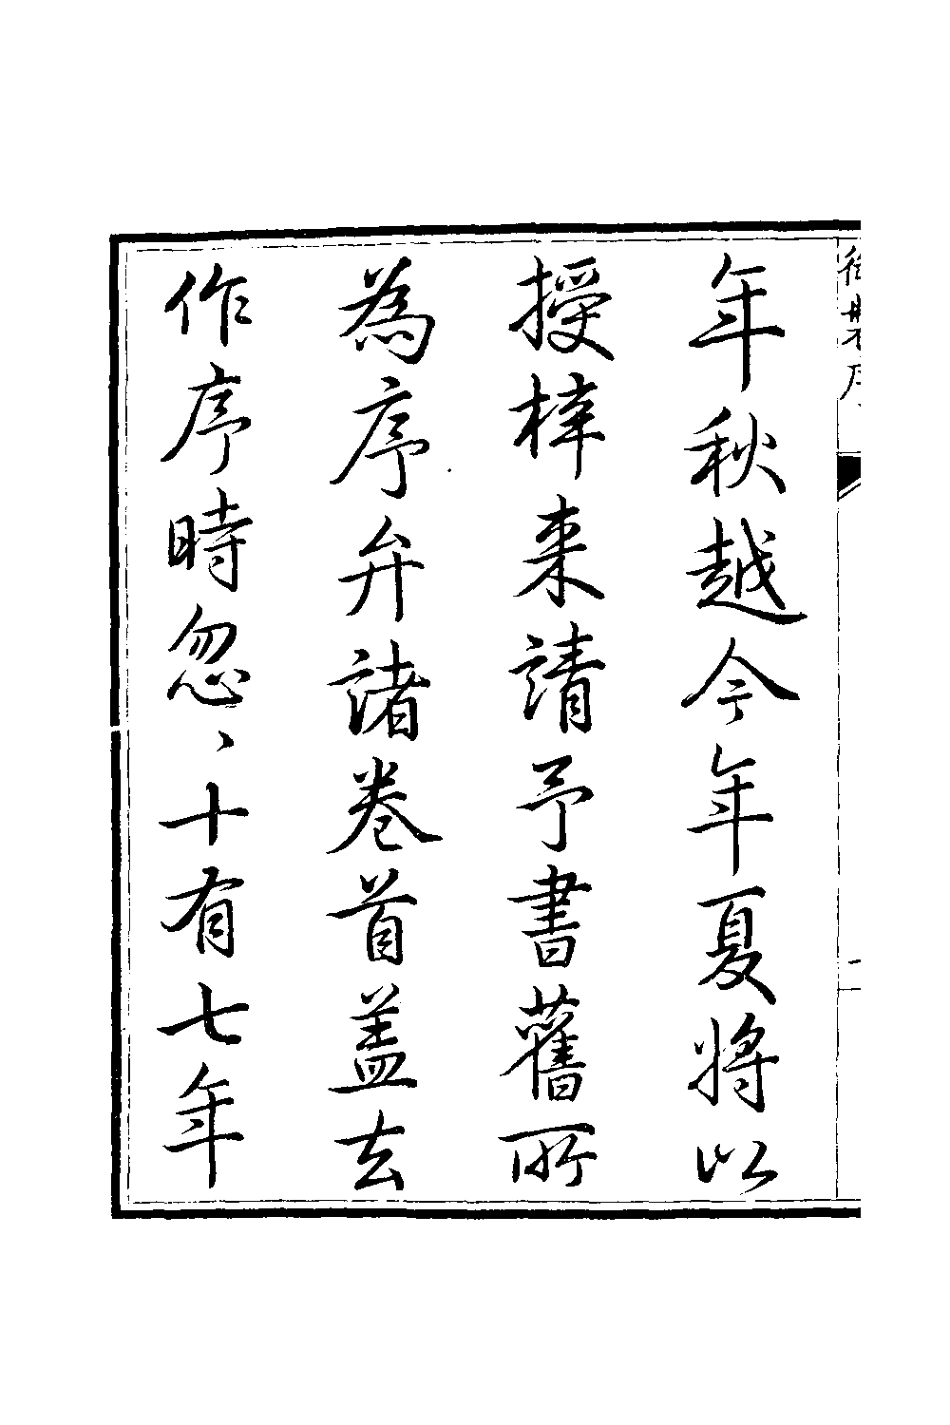 御製序
年秋越今年夏將以
授梓来請予書舊所
為序弁諸卷首盖去
作序時忽〻十有七年